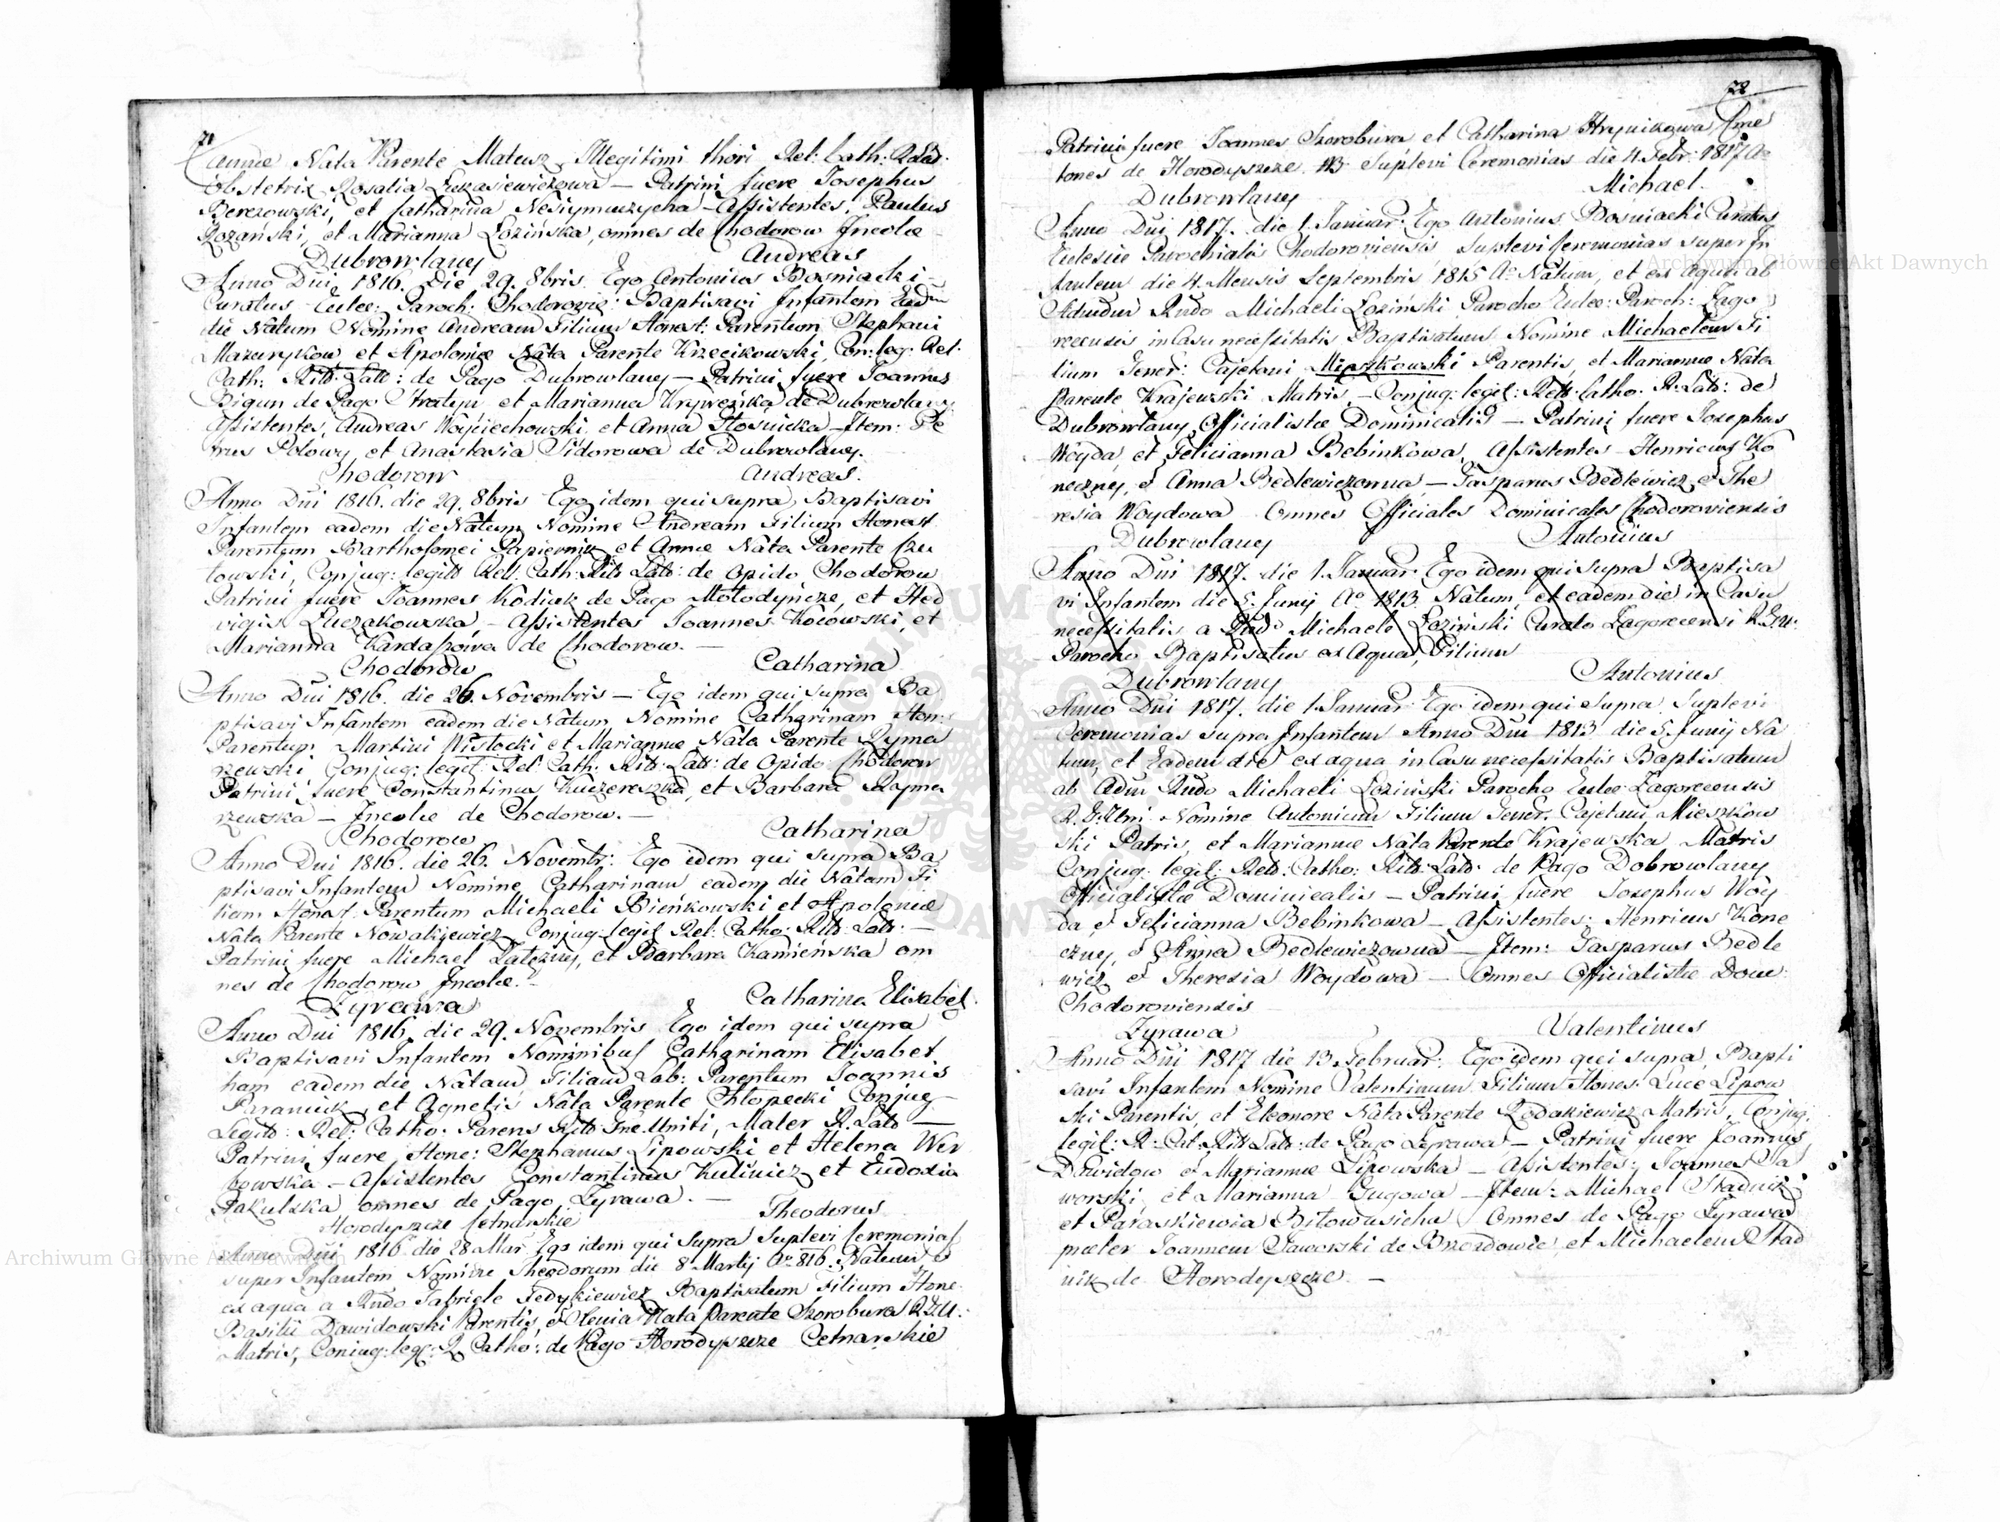 71
Annæ Nata Parente Mateusz Illegitimi thori Rel: Cath: R. Lat:
Obstetrix Rosalia Łukasiewiczowa — Patrini fuere Josephus
Berezowski, et Catharina — Assistentes, Paulus
Rozański, et Marianna Łozińska, omnes de Chodorow Incolæ
Dubrowlany Andreas
Anno Dni 1816. Die 29. 8bris Ego Antonius Bosniacki
Curatus Eccle: Paroch: Chodorovie: Baptisavi Infantem
die Natum Nomine Andream Filium Honest: Parentum Stephani
Mazurykow, et Apoloniæ Nata Parente Krzecikowski, Con: leg: Rel:
Cath: Ritt: Latt: de Pago Dubrowlany — Patrini fuere Joannes
Bigun de Pago et Marianna de Dubrowlany
Assistentes, Andreas Woyciechowski, et Anna Hosnicka — Item: Pe
trus Polowy, et Anastasia Sidorowa de Dubrowlany.
Chodorow Andreas.
Anno Dni 1816. die 29. 8bris Ego idem qui supra Baptisavi
Infantem eadem die Natum Nomine Andream Filium Honest
Parentum Bartholomei Papierniz et Annæ Nata Parente Czu
towski, Conjug: legitt Rel: Cath: Ritt Latt: de Opido Chodorow
Patrini fuere Joannes Kodiak de Pago Mołodyncze, et Hed
vigis Łuczakowska, — Assistentes Joannes Kocowski, et
Marianna Kardaszowa de Chodorow. —
Chodorow Catharina
Anno Dni 1816. die 26. Novembris — Ego idem qui supra Ba
ptisavi Infantem eadem die Natum, Nomine Catharinam Hon:
Parentum Martini Wisłocki et Mariannæ Nata Parente Ryma
rzewski, Conjug: legit: Rel: Cath: Ritt: Latt: de Opido Chodorow
Patrini fuere Constantinus Kuczereszka, et Barbara Rayma
rzewska — Incolæ de Chodorow. —
Chodorow Catharina
Anno Dni 1816. die 26. Novembr: Ego idem qui supra Ba
ptisavi Infantem Nomine Catharinam eadem die Natam Fi
liam Honest: Parentum Michaeli Bieńkowski et Apoloniæ
Nata Parente Nowakiewicz Conjug: legit Rel: Catho: Ritt: Latt: —
Patrini fuere Michael Zalezny, et Barbara Kamieńska om
nes de Chodorow Incolæ. —
Zyrawa Catharina Elisabet.
Anno Dni 1816. die 29. Novembris Ego idem qui supra
Baptisavi Infantem Nominibus Catharinam Elisabet
ham eadem die Natam Filiam Lab: Parentum Joannis
Paraniuk, et Agnetis Nata Parente Chłopecki Conjug
Legitt: Rel: Catho: Parens Ritt Græ: Uniti, Mater R. Latt —
Patrini fuere Hone: Stephanus Lipowski et Helena Wer
bowska — Assistentes Constantinus Kuliniez et Eudoxia
Pakulska omnes de Pago Zyrawa. —
Horodyszcze Cetnarskie Theodorus
Anno Dni 1816. die 28 Mar Ego idem qui supra Suplevi Ceremonias
super Infantem Nomine Theodorum die 8 Martij Ao 816. Natum et
ex aqua a Rndo Gabriele Fedykiewicz Baptisatum Filium Hone
Basilii Dawidowski Parentis, et Olenia Nata Parente Skorobura R. G. U:
Matris, Coniug: leg: R. Catho: de Pago Horodyszcze Cetnarskie
72
Patrini fuere Joannes Skorobura et Catharina Hrynikowa Cme
tones de Horodyszcze. Suplevi Ceremonias die 4. Febr: 1817. Ao
Dubrowlany Michael.
Anno Dni 1817. die 1. Januar: Ego Antonius Bosniacki Curatus
Ecclesiæ Parochialis Chodoroviensis, Suplevi Ceremonias super In
fantem die 4. Mensis Septembris 1815 Ao Natum, et ex aqua ab
Admodum Rndo Michaeli Łoziński Parocho Eccle: Paroch: Zago
recensis in Casu necessitatis Baptisatum Nomine Michaelem Fi
lium Gener: Cajetani Mieszkowski Parentis, et Mariannæ Nata
Parente Krajewski Matris — Conjug: legit: Rell: Catho: R: Lat: de
Dubrowlany, Officialistæ Dominicalis — Patrini fuere Josephus
Woyda, et Felicianna Bebinkowa, Assistentes — Henricus Ko
neczny, et Anna Bedlewiczowna — Gasparus Bedlewicz et The
resia Woydowa — Omnes Officiales Dominicales Chodoroviensis
Dubrowlany Antonius
Anno Dni 1817. die 1. Januar: Ego idem qui supra Baptisa
vi Infantem die 5. Junij Ao 1813. Natum, et eadem die in Casu
necessitatis a Michaele Łoziński Curato Zagorecensi R. G. U.
Parocho Baptisatus ex Aqua, Filium
Dubrowlany Antonius
Anno Dni 1817. die 1. Januar: Ego idem qui supra, Suplevi
Ceremonias supra Infantem Anno Dni 1813 die 5. Junij Na
tum, et Eadem die ex aqua in Casu necessitatis Baptisatum
ab Adm Rndo Michaeli Łoziński Parocho Eccle: Zagorecensis
Nomine Antonium Filium Gener. Cajetani Mieszkow
ski Patris, et Mariannæ Nata Parente Krajewska Matris
Conjug: legit: Rel: Catho: Ritt: Latt: de Pago Dobrowlany
Officialistæ Dominicalis — Patrini fuere Josephus Woy
da, et Felicianna Bebinkowa — Assistentes: Henricus Kone
czny, et Anna Bedlewiczowna — Item: Gasparus Bedle
wicz et Theresia Woydowa — Omnes Officialistæ Dom:
Chodoroviensis
Zyrawa Valentinus
Anno Dni 1817 die 13. Februar: Ego idem qui supra, Bapti
savi Infantem Nomine Valentinum Filium Hones: Lucæ Lipow
ski Parentis, et Eleonore Nata Parente Rodakiewicz Matris, Conjug:
legit: R: Cat: Ritt: Latt: de Pago Zyrawa — Patrini fuere Joannes
Dawidow et Marianna Lipowska — Assistentes: Joannes Ja
worski, et Marianna Gugowa — Item: Michael Stadnik
et Paraskiewia Biłowusicha Omnes de Pago Zyrawa
præter Joannem Jaworski de Brzozdowie, et Michaelem Stad
nik de Horodyszcze. —
Archiwum Główne Akt Dawnych
Archiwum Główne Akt Dawnych